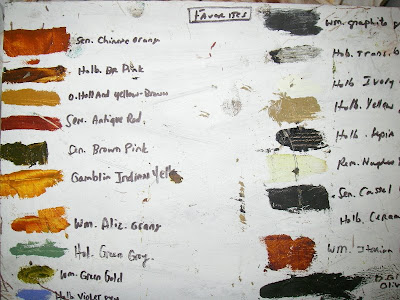 FAVORITES
Sen. Chinese Orange
Holb. Br. Pink
O. Holland Yellow-Brown
Sen. Antique Red.
Dan. Brown Pink
Gamblin Indian Yello
Wm. Aliz. Orang
Hol. Green Grey.
Wm. Green Gold
Holb Violet Grey
Wm. graphite
Holb. Trans.
Holb Ivory
Holb. Yellow
Holb. Sepia
Rem. Naples
Sen. Cassel
Holb. Ceram
Wm. Italian
Oliv